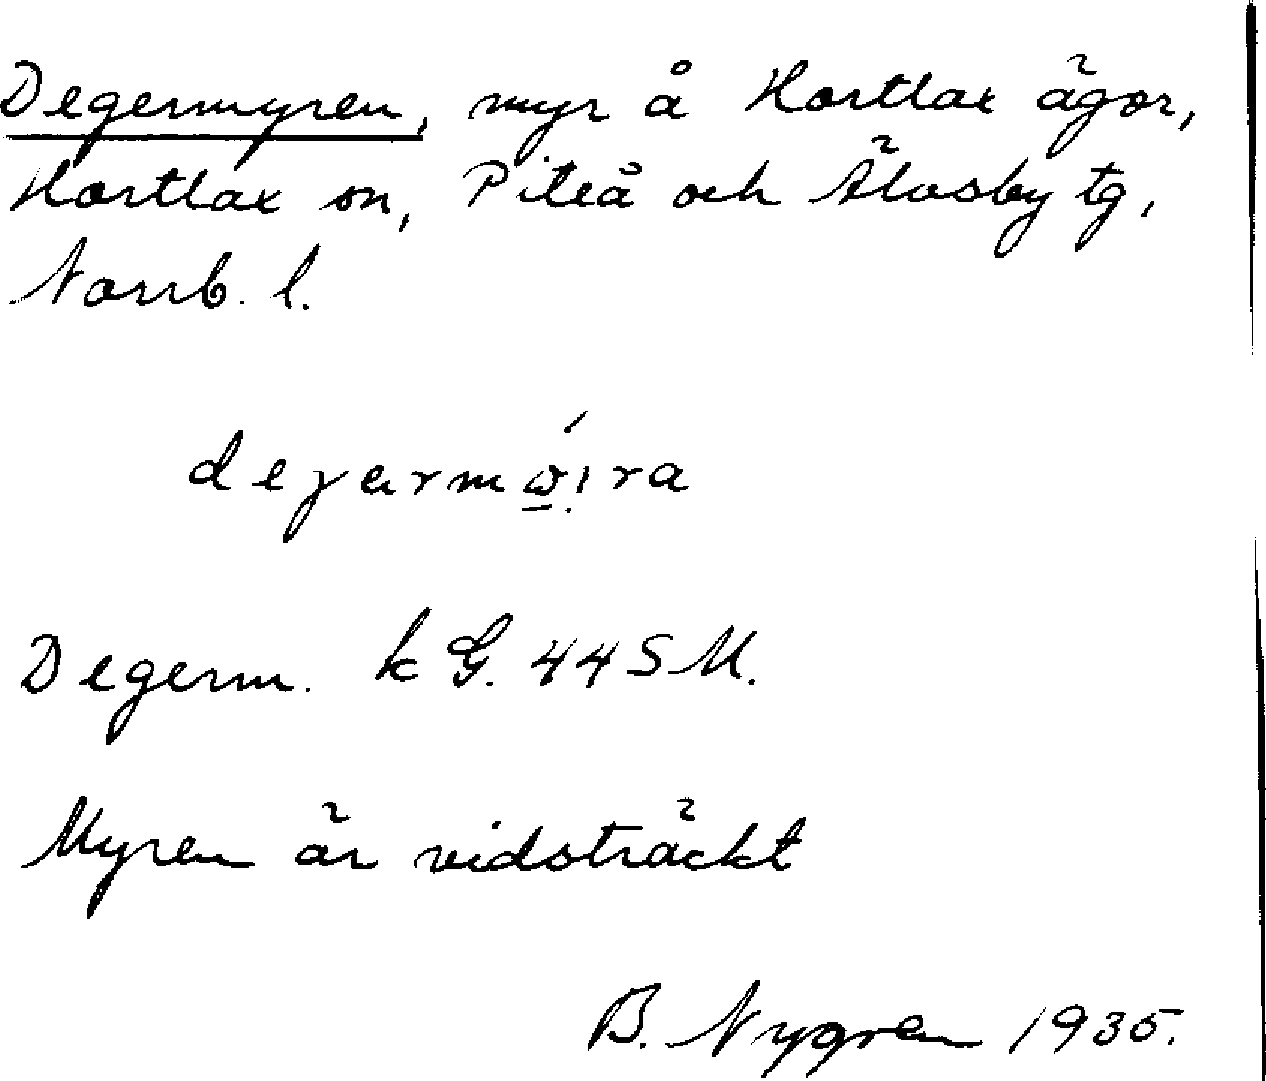 Degermyren, myr å Hortlax ägor,
Hortlax sn, Piteå och Älvsby tg,
Norrb. l.
Degerm. k G. 44 S M.
Myren är vidsträckt
B. Nygren 1935.